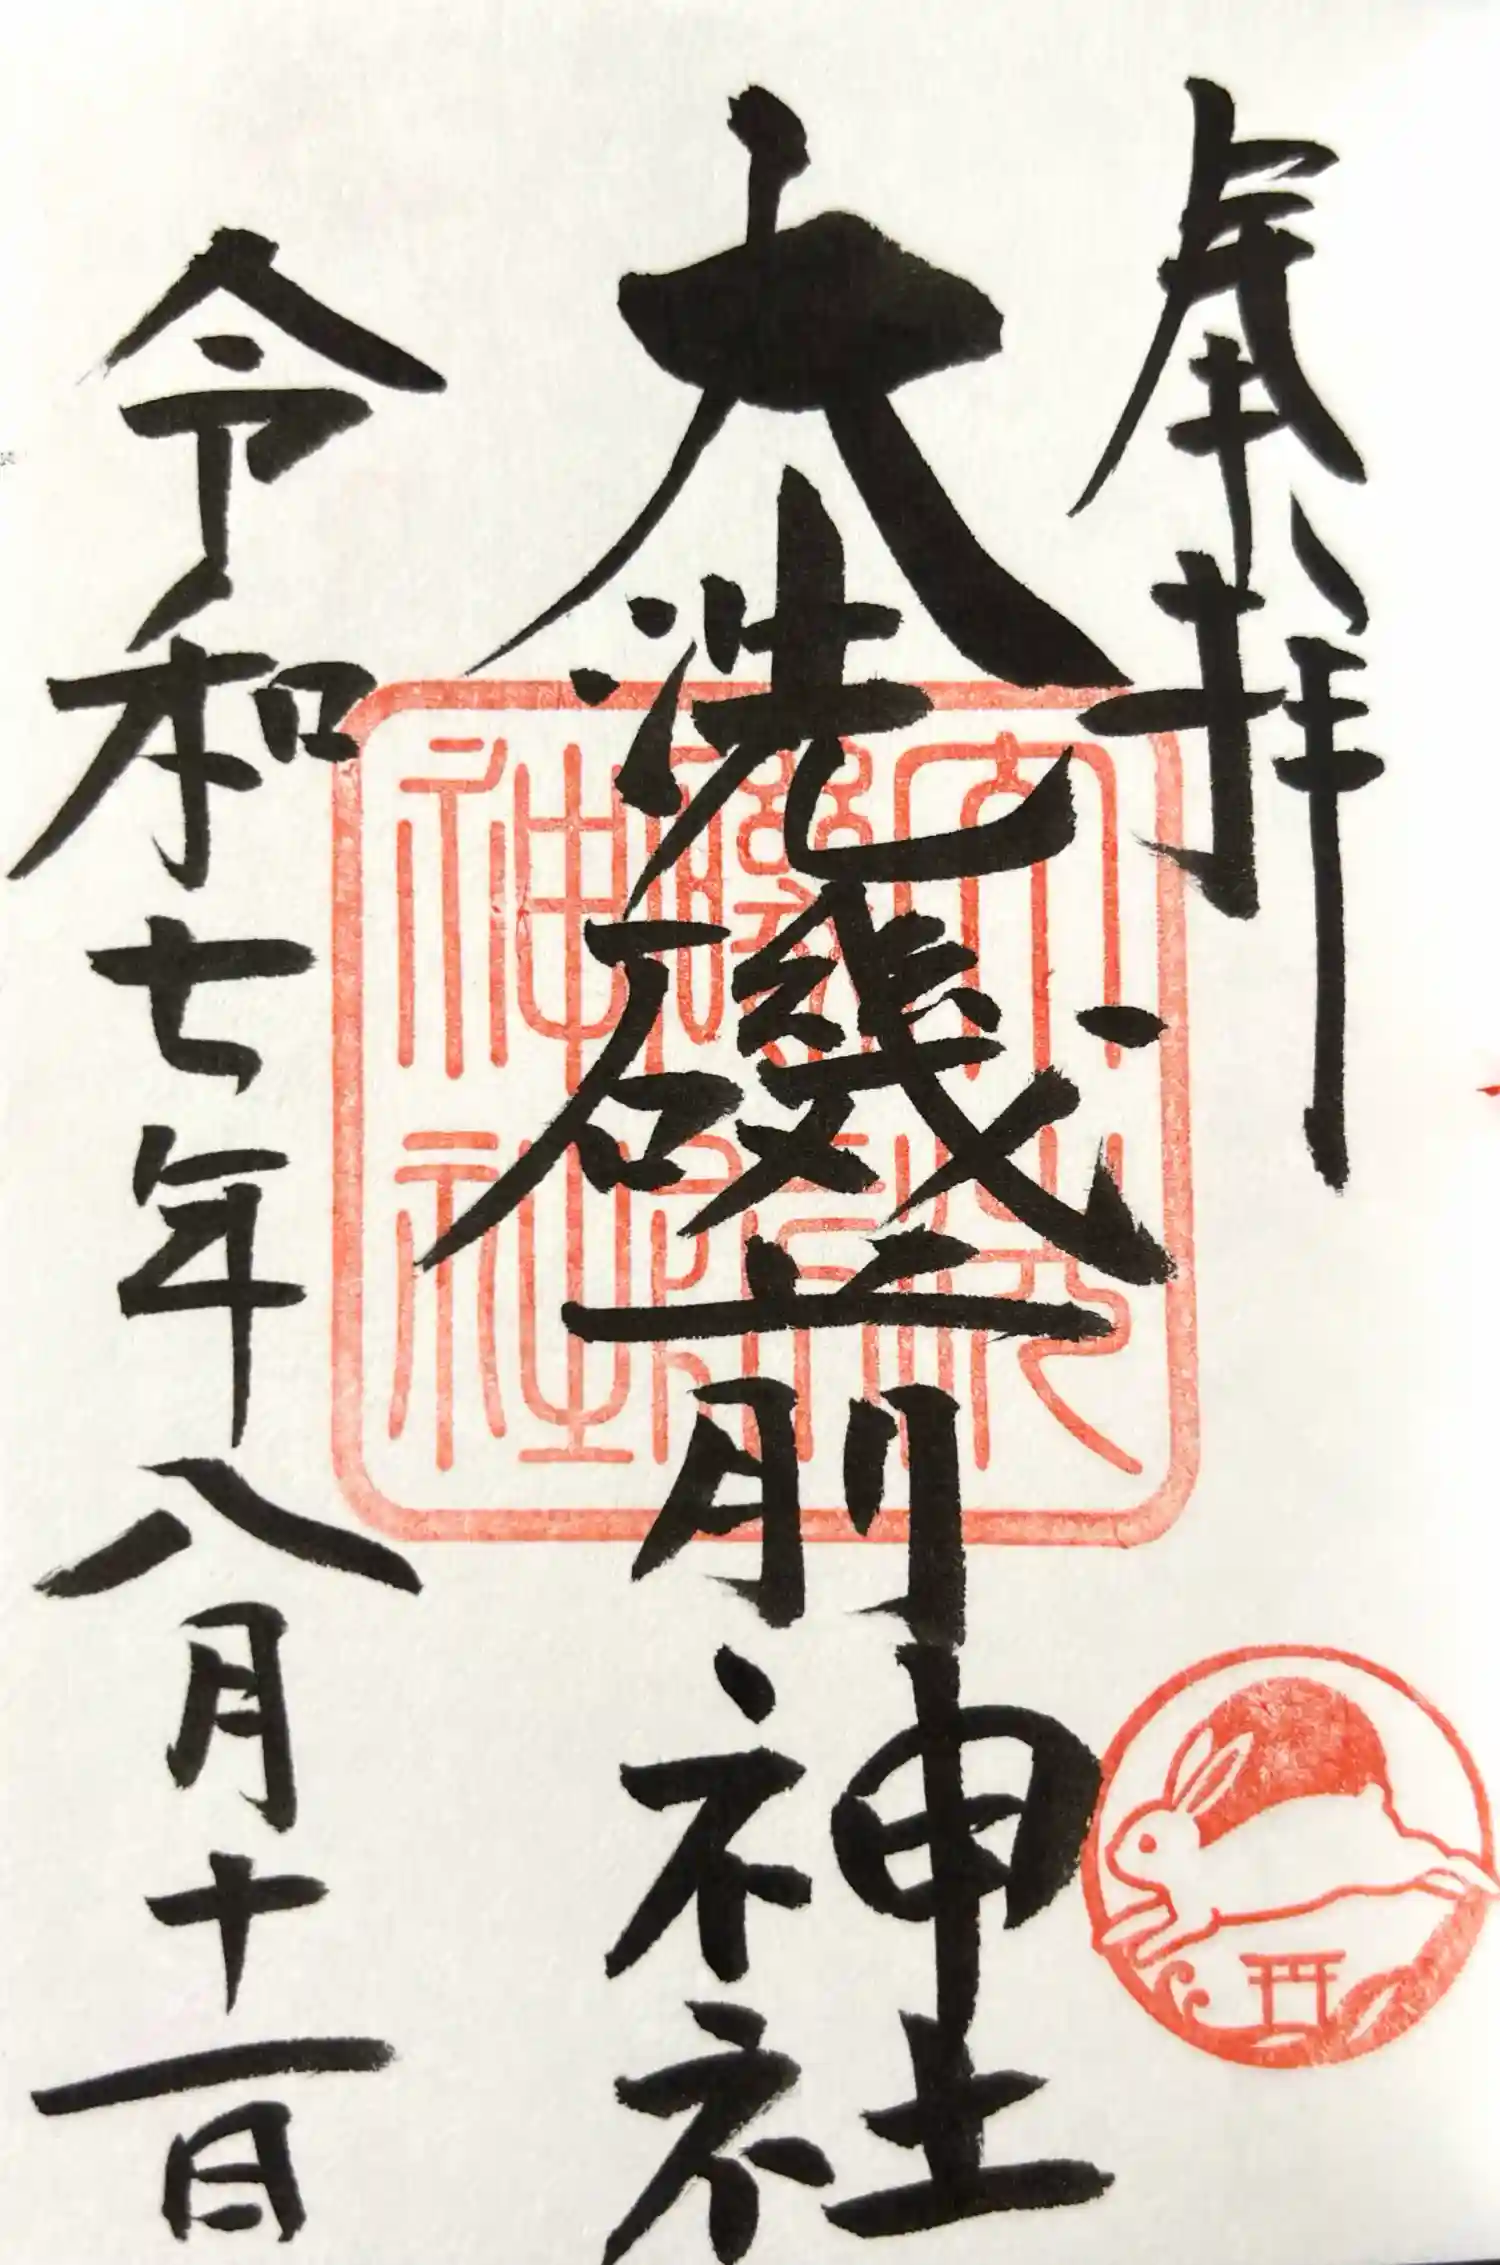 奉拝
大洗磯前神社
大洗磯前神社
令和七年八月十一日